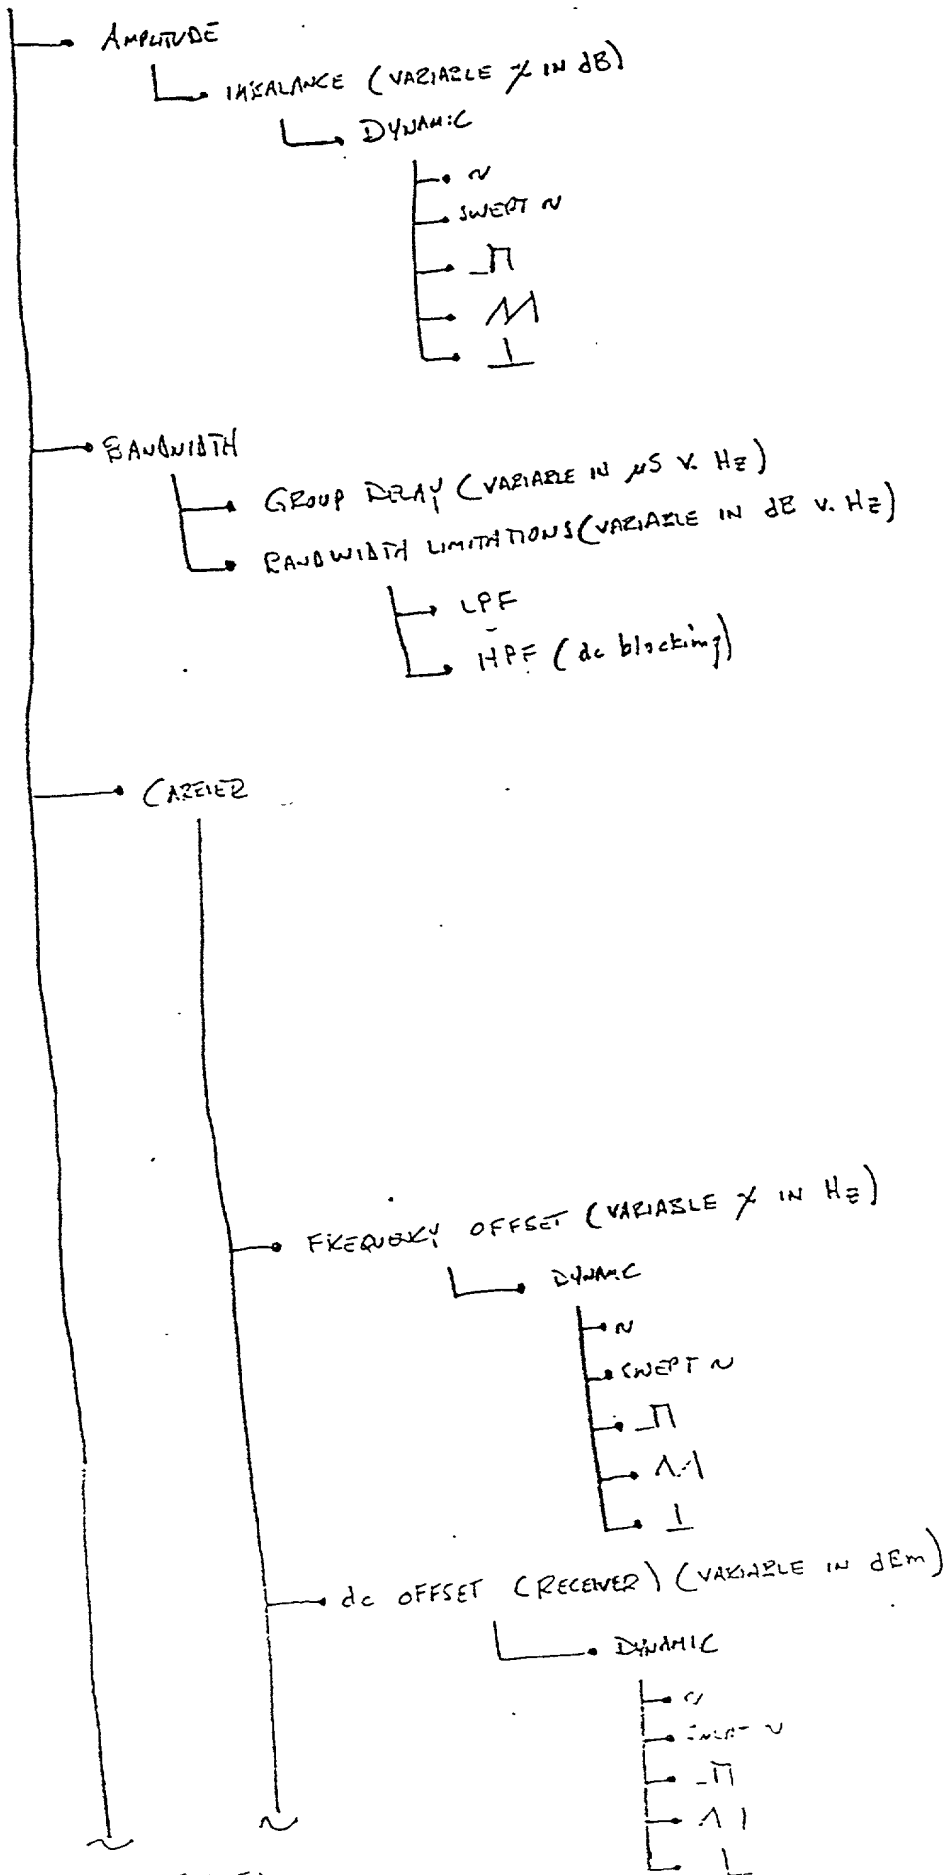 AMPLITUDE
IMBALANCE (VARIABLE % IN dB)
DYNAMIC
~
SWEPT ~
BANDWIDTH
GROUP DELAY (VARIABLE IN µS V. Hz)
BANDWIDTH LIMITATIONS (VARIABLE IN dB V. Hz)
LPF
HPF (dc blocking)
CARRIER
FREQUENCY OFFSET (VARIABLE % IN Hz)
DYNAMIC
~
SWEPT ~
dc OFFSET (RECEIVER) (VARIABLE IN dBm)
DYNAMIC
~
SWEPT ~